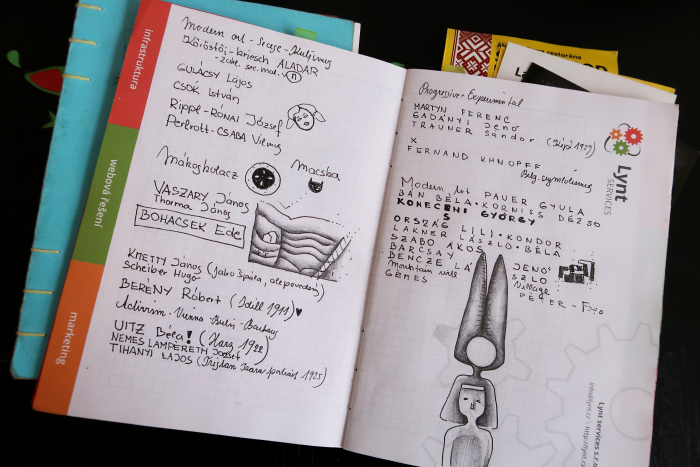 infrastruktura
webová řešení
marketing
Modern art - Secese - Kultjmus
Köröstői-kriesch ALADÁR
GULÁCSY Lajos
CSÓK István
Rippl-RÓNAI József
Perlrott-CSABA Vilmos
Mákosholacz
Macska
VASZARY János
Thorma János
BOHACSEK Ede
KMETTY János (jako Špála, ale povedený)
Scheiber Hugo
BERÉNY Róbert (Idill 1911) ♥
Activism - Vienna - Berlin - Bauhaus
UITZ Béla! (Harz, 1922)
NEMES LAMPÉRTH József
TIHANYI LAJOS (Tristan Tzara portrait 1925)
Progressive + Experimental
MARTYN FERENC
GADÁNYI Jenő
TRAUNER Sándor (Kép 1927)
X
FERNAND KHNOPFF
Belg. symbolismus
Modern Art PAUER GYULA
BÁN BÉLA • KORNISS DEZSO
KONECSNI GYÖRGY
S
ORSZÁG LILI • KONDOR
LAKNER LÁSZLÓ • BÉLA
SZABO ÁKOS
BARCSAY JENŐ
BENCZE LÁSZLO
mountain Village
GÉMES PÉTER
Lynt
SERVICES
Lynt services s.r.o.
info@lynt.cz | http://lynt.cz
restorāns